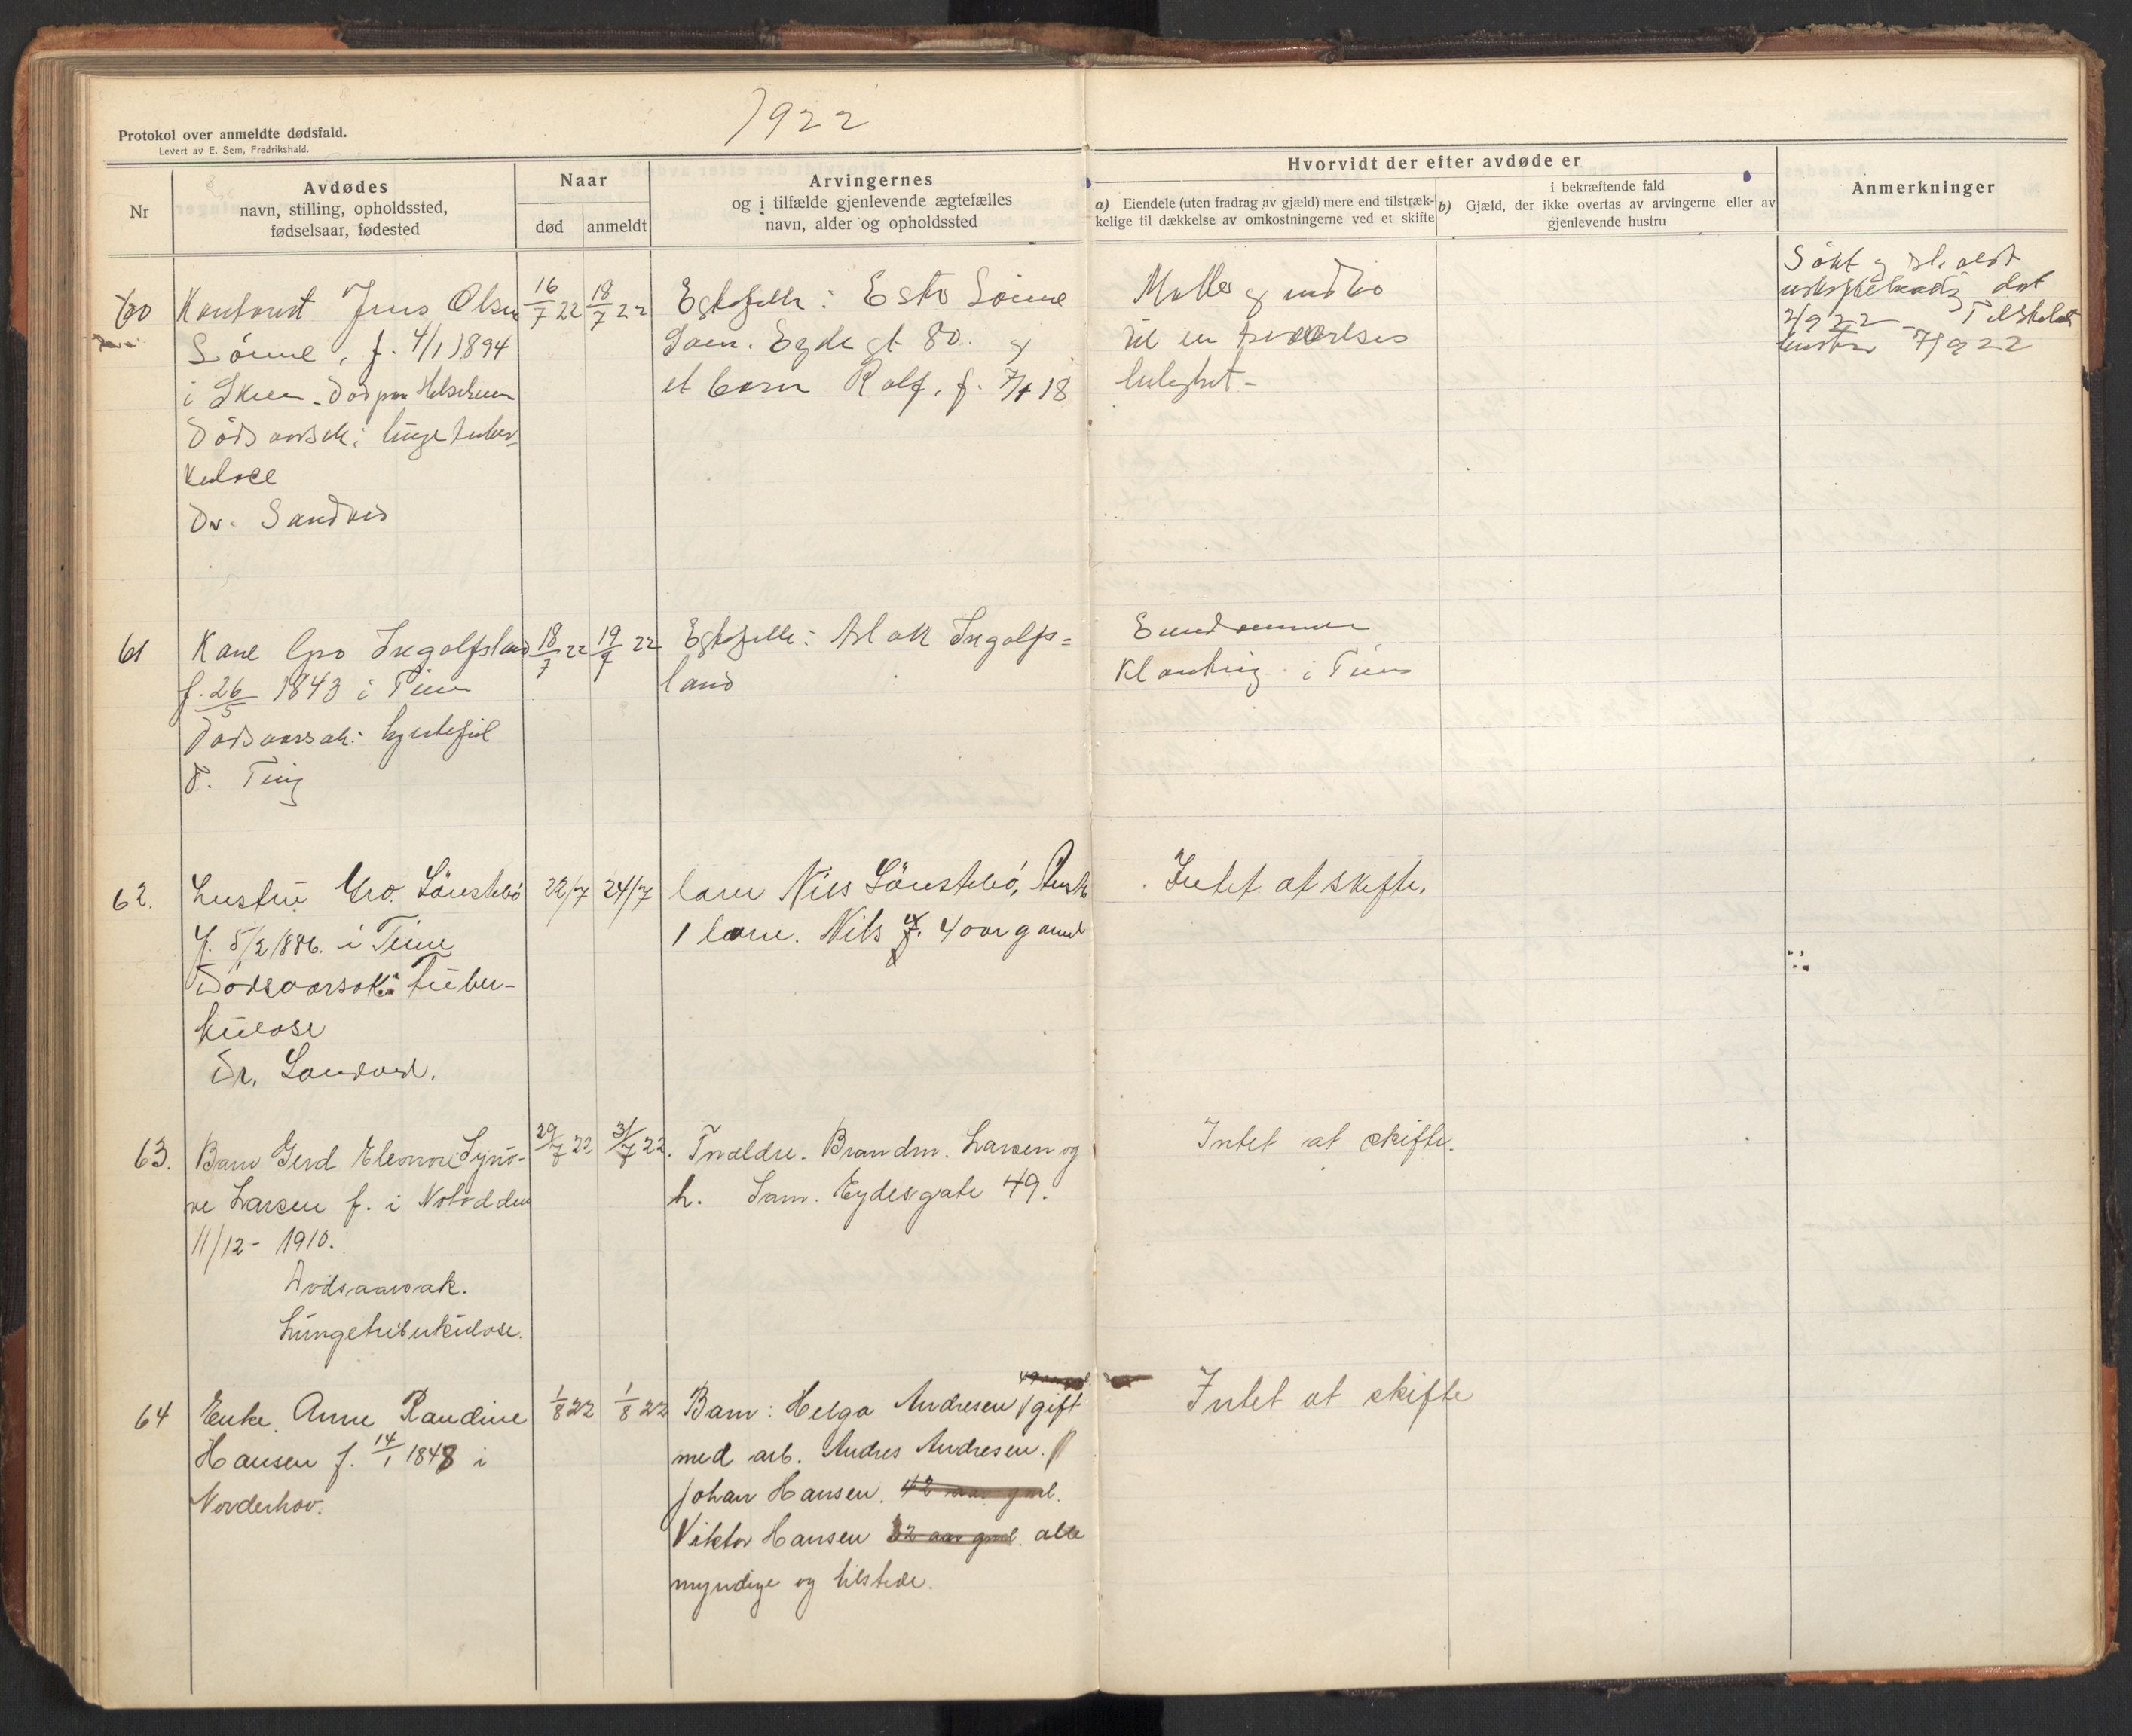 1922
Protokol over anmeldte dødsfald.
Levert av E. Sem, Fredrikshald.
Nr
Avdødes
navn, stilling, opholdssted,
fødselsaar, fødested
Naar
død
anmeldt
Arvingernes
og i tilfælde gjenlevende ægtefælles
navn, alder og opholdssted
Hvorvidt der efter avdøde er
a) Eiendele (uten fradrag av gjæld) mere end tilstræk-
kelige til dækkelse av omkostningerne ved et skifte
b) i bekræftende fald
Gjæld, der ikke overtas av arvingerne eller av
gjenlevende hustru
Anmerkninger
60
Kontorist Jens Olsen
Sönne, f. 4/1 1894
i Skien. Död paa
Dödsaarsak: lungetuber-
kulose
Dr. Sandved
16/7 22
18/7 22
Egtefelle: Sönne
Sam. Eydegt 80. og
et barn Rolf, f. 18
Møbler og indbo
til en
leilighet -
Sökt og
dat
22 - Tilstedet
22
61
Kone Gro Ingolfsland
f. 26/5 1843 i Tinn
Dödsaarsak: hjertefeil
D. Ting
18/7 22
19/7 22
Egtefelle: Aslak Ingolfs=
land
Eiendommen
i Tinn
62.
Hustru Gro Lönstebö
f. 5/2 1886. i Tinn
Dödsaarsak: Tuber-
kulose
Dr. Sandved.
22/7
24/7
Nils Lönstebö,
1 barn. Nils f. 4 aar gammel
Intet at skifte.
63.
Barn Gerd Eleonore Synö-
ve Larsen f. i Notodden
11/12 - 1910.
Dødsaarsak.
Lungetuberkulose.
29/7 22
31/7 22.
Forældre. Brandm. Larsen og
h. Sam. Eydesgate 49.
Intet at skifte.
64
Enke. Anne Randine
Hansen f. 14/1 1848 i
Norderhov.
1/8 22
1/8 22
Barn: Helga Andresen gift
med arb. Andres Andresen.
Johan Hansen. 42 aar gml.
Viktor Hansen 32 aar gml. alle
myndige og tilstede.
Intet at skifte